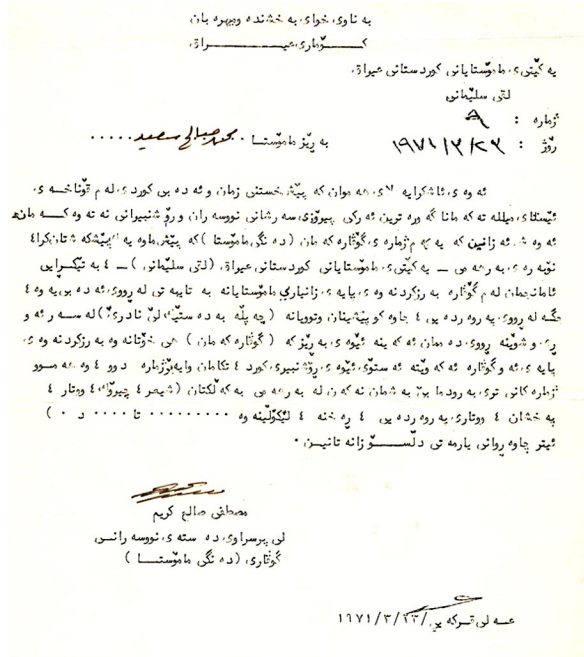 به ناوی خوای به خشنده ومیهره بان
کـــۆماری عیـــراق
یه کێتی ی ماموٚستایانی کوردستانی عیراق
لقی سلێمانی
ژماره : ٨
روٚژ : ١٩٧١/٣/٢٣
به رێز ماموٚستا . محمد صالح سعید .....
ئه وه ی ئاشکرایه لای هه موان که پێش خستنی زمان و ئه ده بی کوردی له م قوٚناخه ی
ئێستای میلله ته که مانا گه وره ترین ئه رکی پیروٚزی سه رشانی نووسه ران و روٚشنبیرانی نه ته وه که مانه
ئه وه ش ئه زانین که یه که م ژماره ی گوٚڤاره که مان (ده نگی ماموٚستا) که پێشتر ماوه یه پێشکه شتان کرا؛
نوٚبه ره ی به رهه می ــ یه کێتی ی ماموٚستایانی کوردستانی عیراق، (لقی سلێمانی) ــ ؛ به تێکرایی
ئامانجمان له م گوٚڤاره به رزکردنه وه ی پایه ی زانیاریی ماموٚستایانه به تایبه تی له رووی ئه ده بی یه وه ؛
جگه له رووی په روه رده یی ؛ جاوه کو پێشینان وتوویانه (چه پڵه به ده ستێ لێ نادرێ) له سه ر ئه و
رێ و شوێنه رووی ده مان ئه که ینه ئێوه ی به رێز که (گوٚڤاره که مان) هی خوٚتانه وه به رزکردنه وه ی
پایه ی ئه و گوٚڤاره ئه که وێته ئه ستوٚی ئێوه ی روٚشنبیری کورد ؛ تکامان وایه بوٚ ژماره دوو ؛ وه هه مـوو
ژماره کانی تری به رودوا بێ به شمان نه که ن له به رهه می به که ڵکتان (شیعر ؛ چیروٚک ؛ ووتار ؛
په خشان ؛ ووتاری په روه رده یی ؛ ره خنه ؛ لێکوٚڵینه وه .......... تا .... د . )
ئیتر چاوه روانی یارمه تی دڵســوٚزانه تانیـن .
مصطفی صالح کریم
لێ پرسراوی ده سته ی نووسه رانـی
گوٚڤاری (ده نگی ماموٚستــا )
عـه لی تـرکه یی/١٩٧١/٣/٢٣